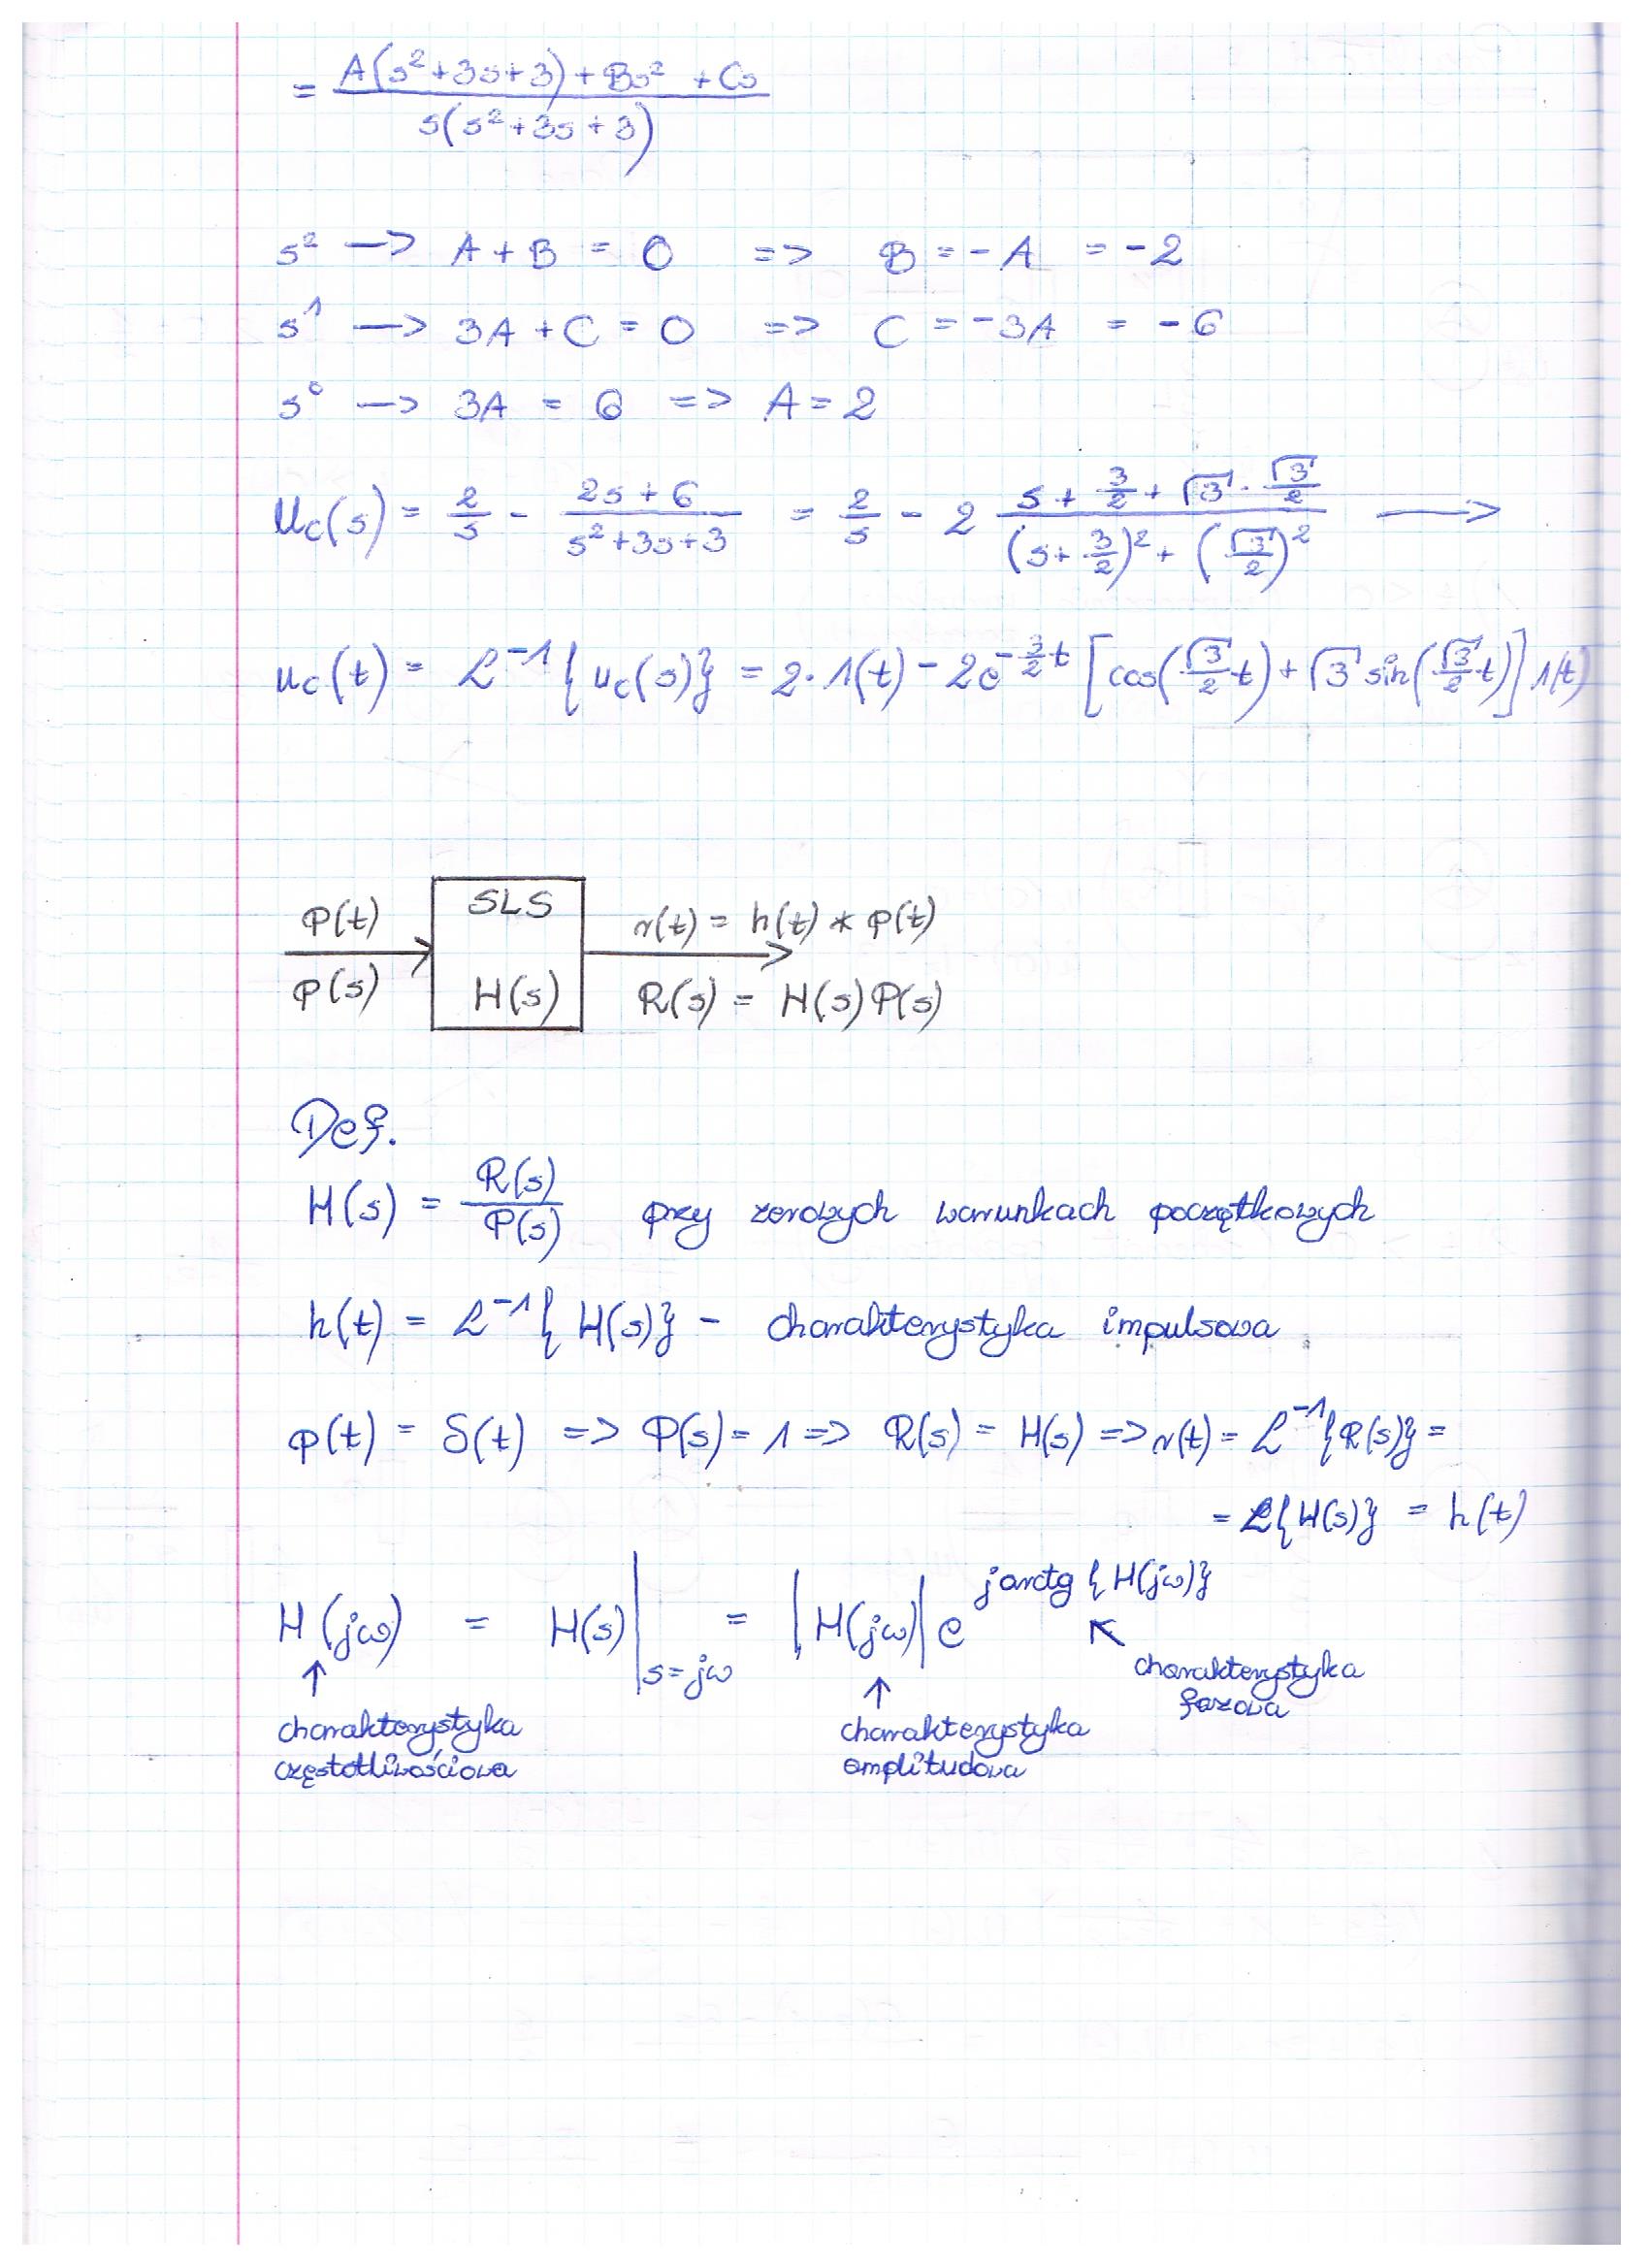 = A(s²+3s+3)+Bs² +Cs / s(s²+3s+3)
s² —> A+B = 0 => B = -A = -2
s¹ —> 3A+C = 0 => C = -3A = -6
s⁰ —> 3A = 6 => A = 2
Uc(s) = 2/s - (2s+6)/(s²+3s+3) = 2/s - 2 (s+3/2+√3·√3/2)/((s+3/2)²+(√3/2)²) ⟶
uc(t) = ℒ⁻¹{uc(s)} = 2·1(t) - 2e^(-3/2 t) [cos(√3/2 t)+√3 sin(√3/2 t)] 1(t)
P(t) SLS r(t) = h(t) * p(t)
P(s) H(s) R(s) = H(s)P(s)
Def.
H(s) = R(s)/P(s) przy zerowych warunkach początkowych
h(t) = ℒ⁻¹{H(s)} - charakterystyka impulsowa
p(t) = δ(t) => P(s) = 1 => R(s) = H(s) => r(t) = ℒ⁻¹{R(s)} =
= ℒ{H(s)} = h(t)
H(jω) = H(s)|s=jω = |H(jω)| e^(j arctg {H(jω)})
↑ charakterystyka częstotliwościowa
↑ charakterystyka amplitudowa
↖ charakterystyka fazowa